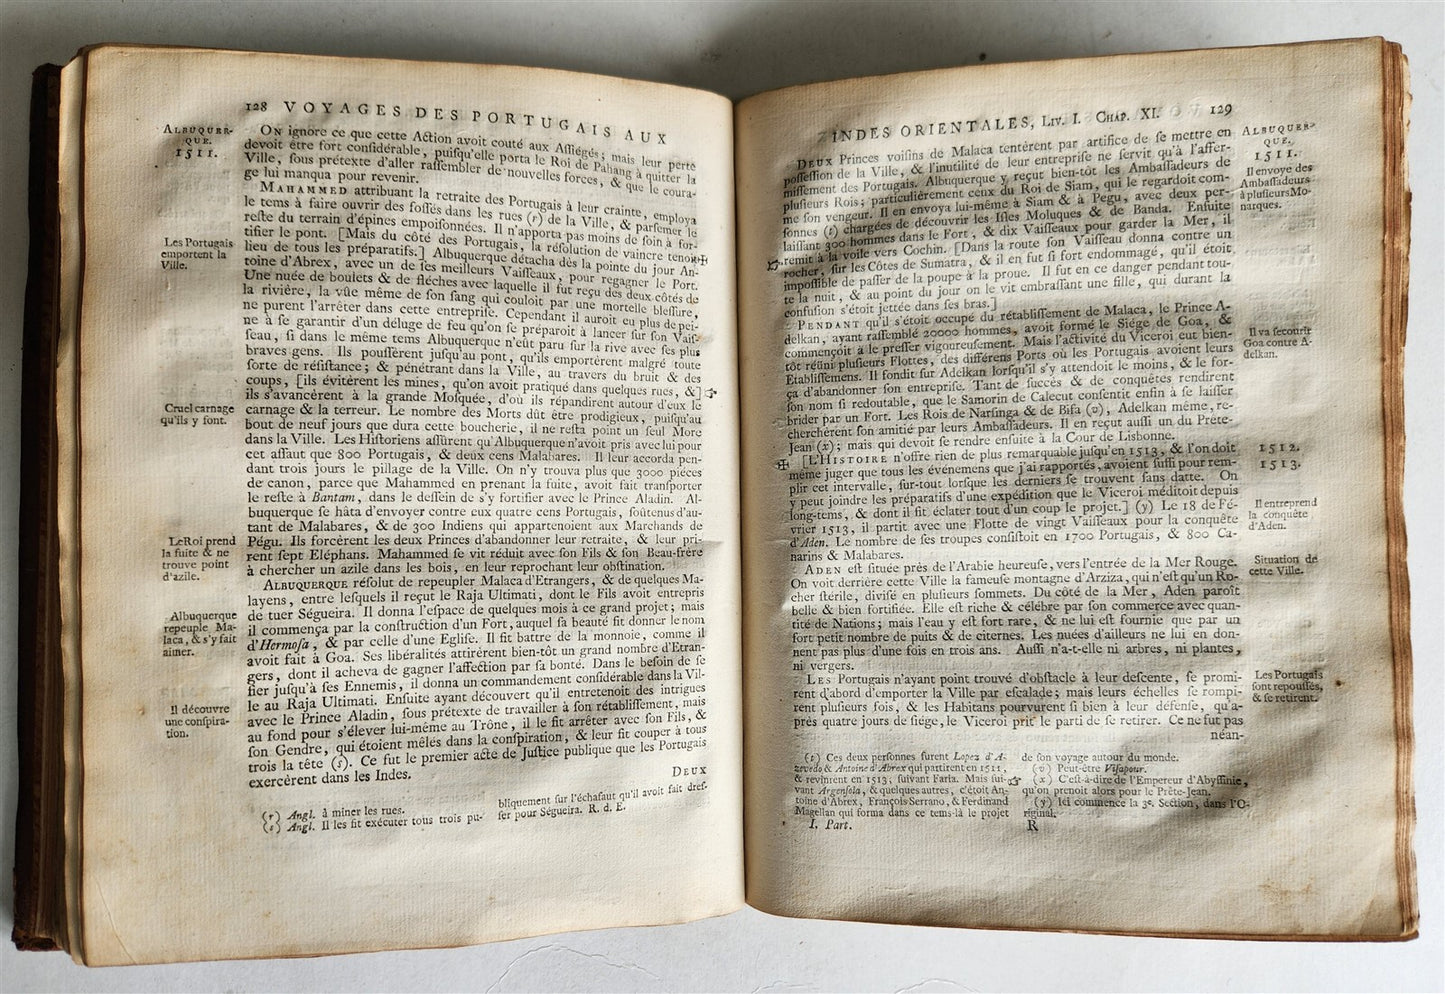 128 VOYAGES DES PORTUGAIS AUX
ALBUQUER-
QUE.
1511.
ON ignore ce que cette Action avoit couté aux Assiégés; mais leur perte
devoit être fort considérable, puisqu'elle porta le Roi de Pahang à quitter la
Ville, sous prétexte d'aller rassembler de nouvelles forces, & que le coura-
ge lui manqua pour revenir.
MAHAMMED attribuant la retraite des Portugais à leur crainte, employa
le tems à faire ouvrir des fossés dans les rues (r) de la Ville, & parsemer le
reste du terrain d'épines empoisonnées. Il n'apporta pas moins de soin à for-
tifier le pont. [Mais du côté des Portugais, la résolution de vaincre tenoit
lieu de tous les préparatifs.] Albuquerque détacha dès la pointe du jour An-
toine d'Abrex, avec un de ses meilleurs Vaisseaux, pour regagner le Port.
Une nuée de boulets & de fléches avec laquelle il fut reçu des deux côtés de
la rivière, la vûe même de son sang qui couloit par une mortelle blessure,
ne purent l'arrêter dans cette entreprise. Cependant il auroit eu plus de pei-
ne à se garantir d'un déluge de feu qu'on se préparoit à lancer sur son Vais-
seau, si dans le même tems Albuquerque n'eût paru sur la rive avec ses plus
braves gens. Ils poussèrent jusqu'au pont, qu'ils emportèrent malgré toute
sorte de résistance; & pénétrant dans la Ville, au travers du bruit & des
coups, [ils évitèrent les mines, qu'on avoit pratiqué dans quelques rues, &]
ils s'avancèrent à la grande Mosquée, d'où ils répandirent autour d'eux le
carnage & la terreur. Le nombre des Morts dût être prodigieux, puisqu'au
bout de neuf jours que dura cette boucherie, il ne resta point un seul More
dans la Ville. Les Historiens assûrent qu'Albuquerque n'avoit pris avec lui pour
cet assaut que 800 Portugais, & deux cens Malabares. Il leur accorda pen-
dant trois jours le pillage de la Ville. On n'y trouva plus que 3000 piéces
de canon, parce que Mahammed en prenant la fuite, avoit fait transporter
le reste à Bantam, dans le dessein de s'y fortifier avec le Prince Aladin. Al-
buquerque se hâta d'envoyer contre eux quatre cens Portugais, soûtenus d'au-
tant de Malabares, & de 300 Indiens qui appartenoient aux Marchands de
Pégu. Ils forcèrent les deux Princes d'abandonner leur retraite, & leur pri-
rent sept Eléphans. Mahammed se vit réduit avec son Fils & son Beau-frère
à chercher un azile dans les bois, en leur reprochant leur obstination.
ALBUQUERQUE résolut de repeupler Malaca d'Etrangers, & de quelques Ma-
layens, entre lesquels il reçut le Raja Ultimati, dont le Fils avoit entrepris
de tuer Ségueira. Il donna l'espace de quelques mois à ce grand projet; mais
il commença par la construction d'un Fort, auquel sa beauté fit donner le nom
d'Hermosa, & par celle d'une Eglise. Il fit battre de la monnoie, comme il
avoit fait à Goa. Ses libéralités attirèrent bien-tôt un grand nombre d'Etran-
gers, dont il acheva de gagner l'affection par sa bonté. Dans le besoin de se
fier jusqu'à ses Ennemis, il donna un commandement considérable dans la Vil-
le au Raja Ultimati. Ensuite ayant découvert qu'il entretenoit des intrigues
avec le Prince Aladin, sous prétexte de travailler à son rétablissement, mais
au fond pour s'élever lui-même au Trône, il le fit arrêter avec son Fils, &
son Gendre, qui étoient mêlés dans la conspiration, & leur fit couper à tous
trois la tête (s). Ce fut le premier acte de Justice publique que les Portugais
exercèrent dans les Indes.
DEUX
Les Portugais
emportent la
Ville.
Cruel carnage
qu'ils y font.
Le Roi prend
la fuite & ne
trouve point
d'azile.
Albuquerque
repeuple Ma-
laca, & s'y fait
aimer.
Il découvre
une conspira-
tion.
(r) Angl. à miner les rues.
(s) Angl. Il les fit exécuter tous trois pu-
bliquement sur l'échafaut qu'il avoit fait dres-
ser pour Ségueira. R. d. E.
INDES ORIENTALES, LIV. I. CHAP. XI. 129
ALBUQUER-
QUE.
1511.
DEUX Princes voisins de Malaca tentèrent par artifice de se mettre en
possession de la Ville, & l'inutilité de leur entreprise ne servit qu'à l'affer-
missement des Portugais. Albuquerque y reçut bien-tôt les Ambassadeurs de
plusieurs Rois; particulièrement ceux du Roi de Siam, qui le regardoit com-
me son vengeur. Il en envoya lui-même à Siam & à Pegu, avec deux per-
sonnes (t) chargées de découvrir les Isles Moluques & de Banda. Ensuite
laissant 300 hommes dans le Fort, & dix Vaisseaux pour garder la Mer, il
remit à la voile vers Cochin. [Dans la route son Vaisseau donna contre un
rocher, sur les Côtes de Sumatra, & il en fut si fort endommagé, qu'il étoit
impossible de passer de la poupe à la proue. Il fut en ce danger pendant tou-
te la nuit, & au point du jour on le vit embrassant une fille, qui durant la
confusion s'étoit jettée dans ses bras.]
PENDANT qu'il s'étoit occupé du rétablissement de Malaca, le Prince A-
delkan, ayant rassemblé 20000 hommes, avoit formé le Siége de Goa, &
commençoit à le presser vigoureusement. Mais l'activité du Viceroi eut bien-
tôt réüni plusieurs Flottes, des différens Ports où les Portugais avoient leurs
Etablissemens. Il fondit sur Adelkan lorsqu'il s'y attendoit le moins, & le for-
ça d'abandonner son entreprise. Tant de succès & de conquêtes rendirent
son nom si redoutable, que le Samorin de Calecut consentit enfin à se laisser
brider par un Fort. Les Rois de Narsinga & de Bisa (v), Adelkan même, re-
cherchèrent son amitié par leurs Ambassadeurs. Il en reçut aussi un du Prete-
Jean (x); mais qui devoit se rendre ensuite à la Cour de Lisbonne.
[L'HISTOIRE n'offre rien de plus remarquable jusqu'en 1513, & l'on doit
même juger que tous les événemens que j'ai rapportés, avoient suffi pour rem-
plir cet intervalle, sur-tout lorsque les derniers se trouvent sans datte. On
y peut joindre les préparatifs d'une expédition que le Viceroi méditoit depuis
long-tems, & dont il fit éclater tout d'un coup le projet.] (y) Le 18 de Fé-
vrier 1513, il partit avec une Flotte de vingt Vaisseaux pour la conquête
d'Aden. Le nombre de ses troupes consistoit en 1700 Portugais, & 800 Ca-
narins & Malabares.
ADEN est située près de l'Arabie heureuse, vers l'entrée de la Mer Rouge.
On voit derrière cette Ville la fameuse montagne d'Arziza, qui n'est qu'un Ro-
cher stérile, divisé en plusieurs sommets. Du côté de la Mer, Aden paroît
belle & bien fortifiée. Elle est riche & célébre par son commerce avec quan-
tité de Nations; mais l'eau y est fort rare, & ne lui est fournie que par un
fort petit nombre de puits & de citernes. Les nuées d'ailleurs ne lui en don-
nent pas plus d'une fois en trois ans. Aussi n'a-t-elle ni arbres, ni plantes,
ni vergers.
LES Portugais n'ayant point trouvé d'obstacle à leur descente, se promi-
rent d'abord d'emporter la Ville par escalade; mais leurs échelles se rompi-
rent plusieurs fois, & les Habitans pourvurent si bien à leur défense, qu'a-
près quatre jours de siége, le Viceroi prit le parti de se retirer. Ce ne fut pas
néan-
Il envoye des
Ambassadeurs
à plusieurs Mo-
narques.
Il va secourir
Goa contre A-
delkan.
1512.
1513.
Il entreprend
la conquête
d'Aden.
Situation de
cette Ville.
Les Portugais
sont repoussés,
& se retirent.
(t) Ces deux personnes furent Lopez d'A-
zevedo & Antoine d'Abrex qui partirent en 1511,
& revinrent en 1513, suivant Faria. Mais sui-
vant Argensola, & quelques autres, c'étoit An-
toine d'Abrex, François Serrano, & Ferdinand
Magellan qui forma dans ce tems-là le projet
de son voyage autour du monde.
(v) Peut-être Visapour.
(x) C'est-à-dire de l'Empereur d'Abyssinie,
qu'on prenoit alors pour le Prête-Jean.
(y) Ici commence la 3e. Section, dans l'O-
riginal.
I. Part.
R